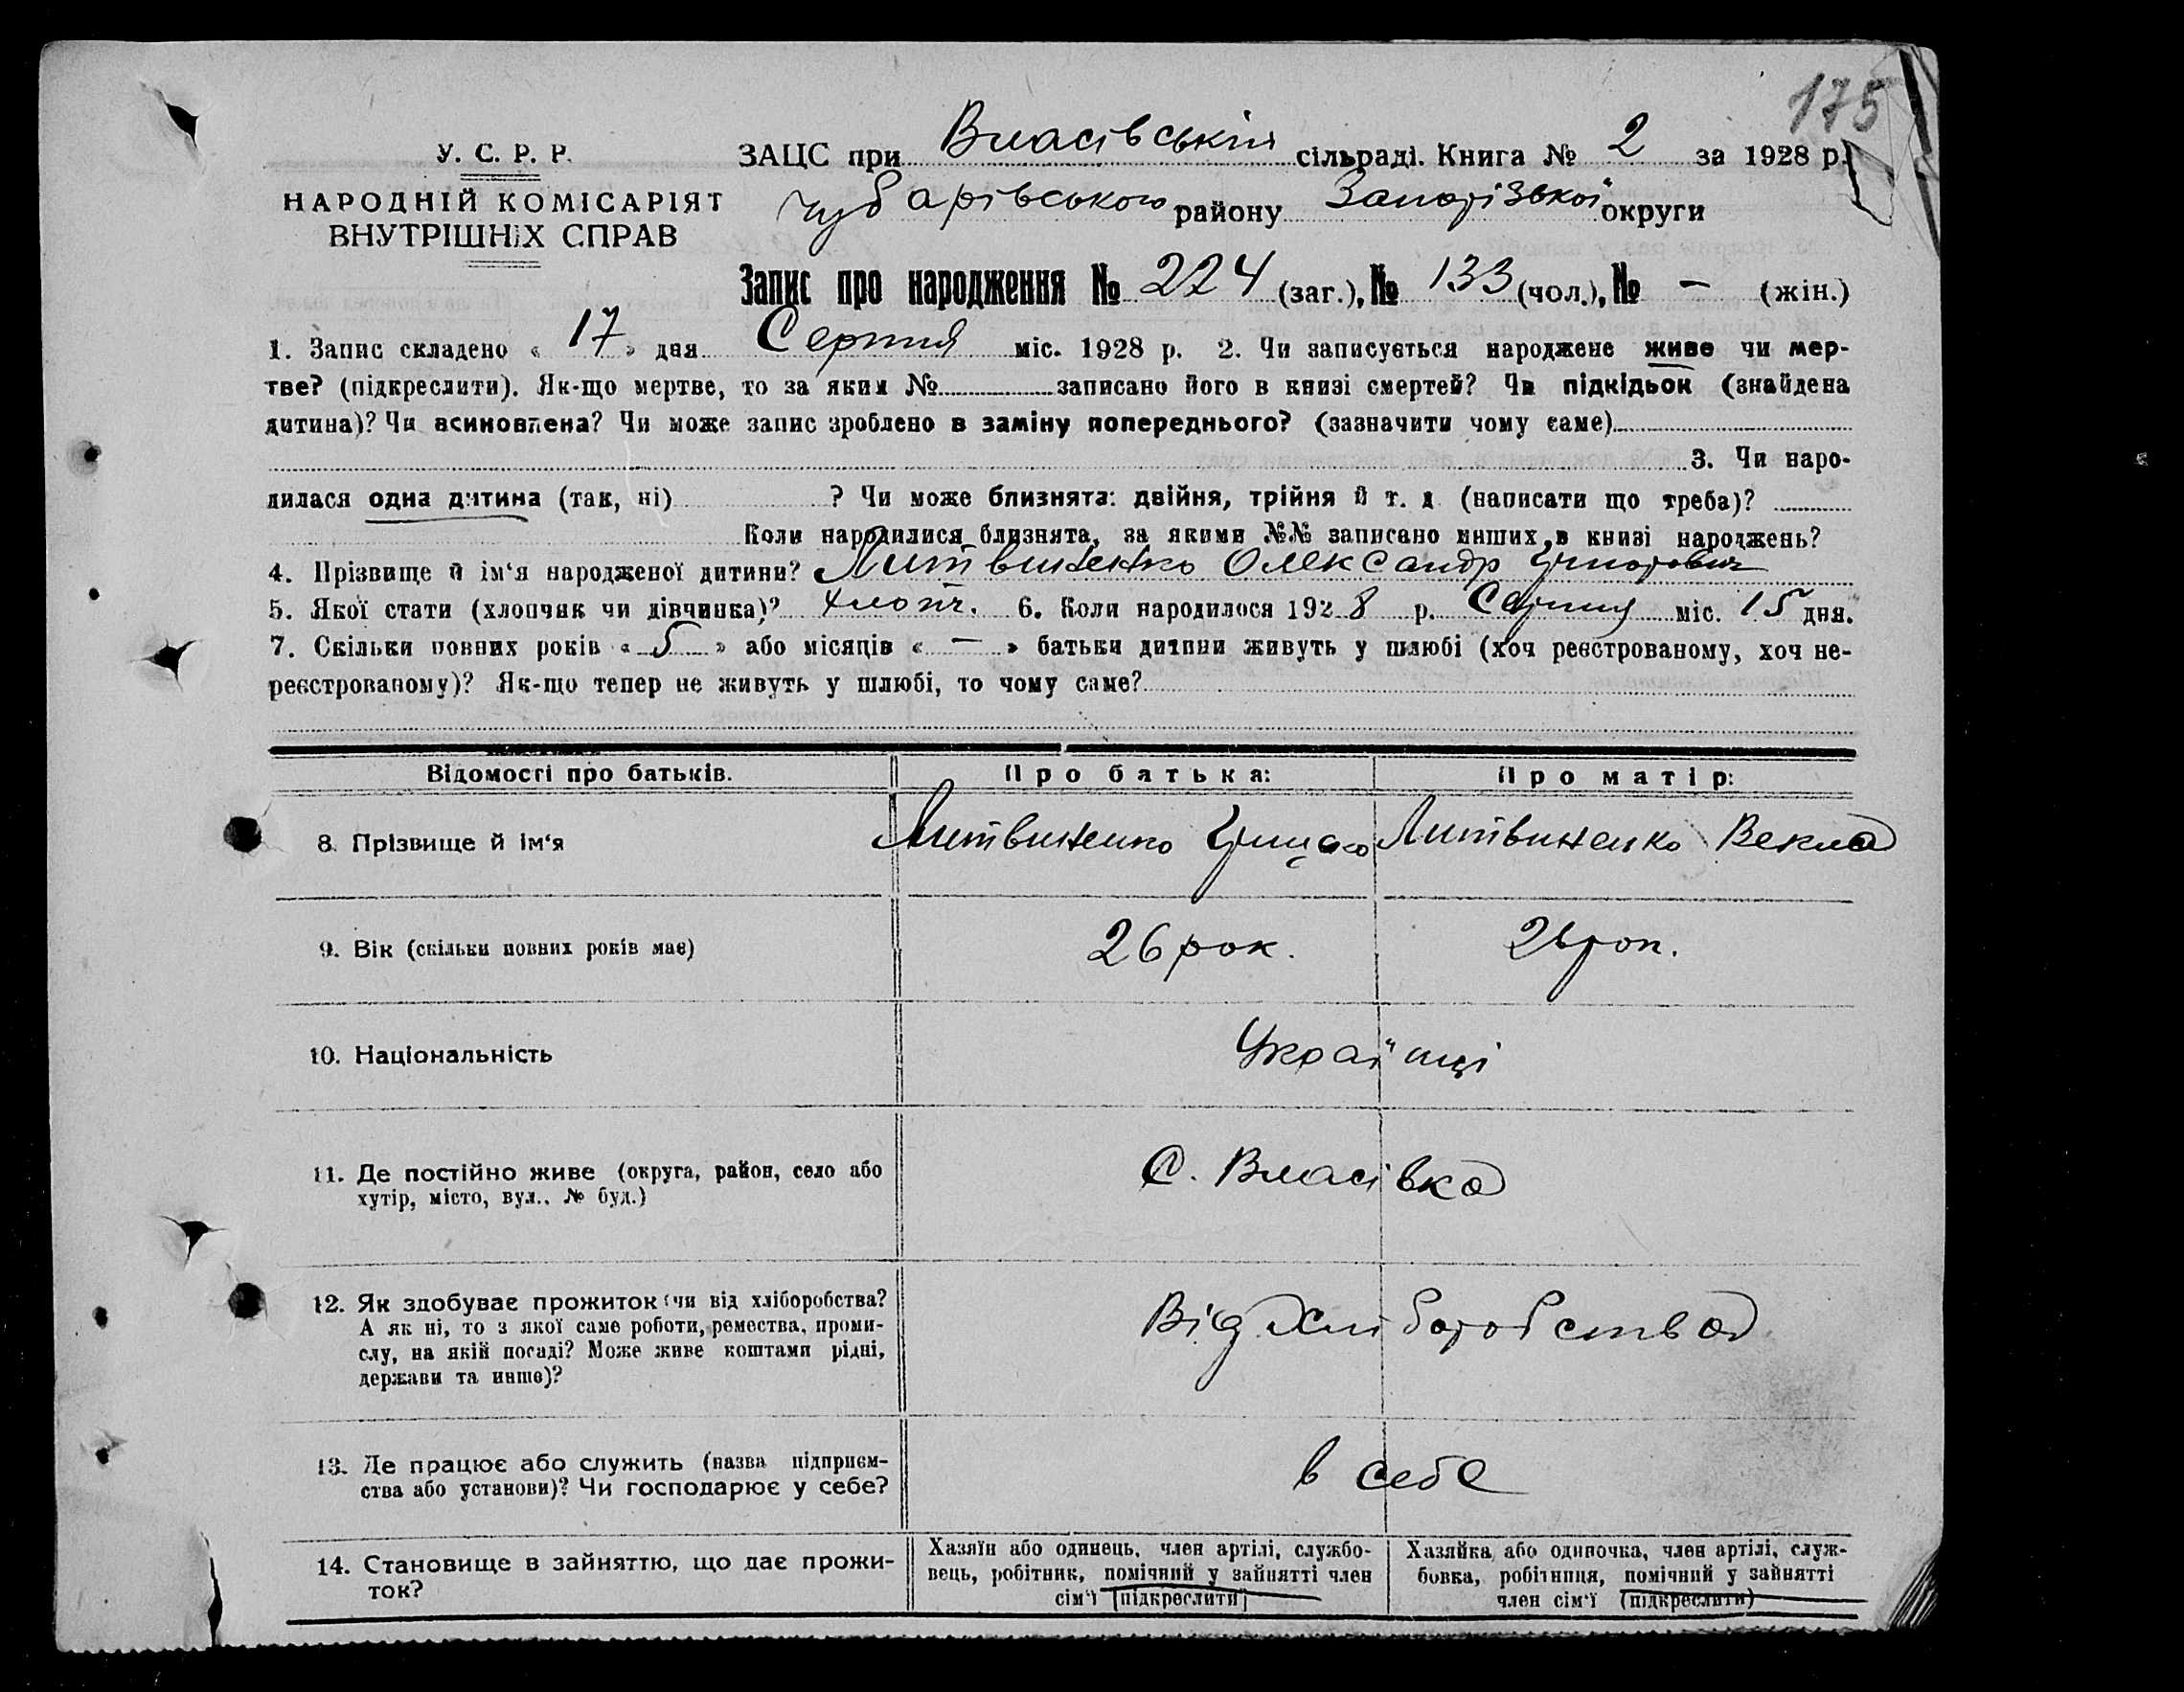 175
У. С. Р. Р.
НАРОДНІЙ КОМІСАРІЯТ
ВНУТРІШНІХ СПРАВ
ЗАЦС при Власівській сільраді. Книга № 2 за 1928 р.
Чубарівського району Запорізької округи
Запис про народження № 224 (заг.), № 133 (чол.), № – (жін.)
1. Запис складено « 17 » дня Серпня міс. 1928 р. 2. Чи записується народжене живе чи мер-
тве? (підкреслити). Як-що мертве, то за яким № записано його в книзі смертей? Чи підкідьок (знайдена
дитина)? Чи всиновлена? Чи може запис зроблено в заміну попереднього? (зазначити чому саме)
3. Чи наро-
дилася одна дитина (так, ні) ? Чи може близнята: двійня, трійня й т. д. (написати що треба)?
Коли народилися близнята, за якими №№ записано инших в книзі народжень?
4. Прізвище й ім'я народженої дитини? Литвиненко Олександр Григорович
5. Якої стати (хлопчик чи дівчинка)? хлопч. 6. Коли народилося 1928 р. Серпня міс. 15 дня.
7. Скільки повних років « 5 » або місяців « — » батьки дитини живуть у шлюбі (хоч реєстрованому, хоч не-
реєстрованому)? Як-що тепер не живуть у шлюбі, то чому саме?
Відомості про батьків. Про батька: Про матір:
8. Прізвище й ім'я Литвиненко Грицько Литвиненко Векла
9. Вік (скільки повних років має) 26 рок. 26 рок.
10. Національність Українці
11. Де постійно живе (округа, район, село або
хутір, місто, вул., № буд.) С. Власівка
12. Як здобуває прожиток (чи від хліборобства?
А як ні, то з якої саме роботи, ремества, проми-
слу, на якій посаді? Може живе коштами рідні,
держави та инше)? Від Хліборобства
13. Де працює або служить (назва підприєм-
ства або установи)? Чи господарює у себе? в себе
14. Становище в зайняттю, що дає прожи-
ток?
Хазяїн або одинець, член артілі, службо-
вець, робітник, помічний у зайнятті член
сім'ї (підкреслити)
Хазяйка або одиночка, член артілі, служ-
бовка, робітниця, помічний у зайнятті
член сім'ї (підкреслити)